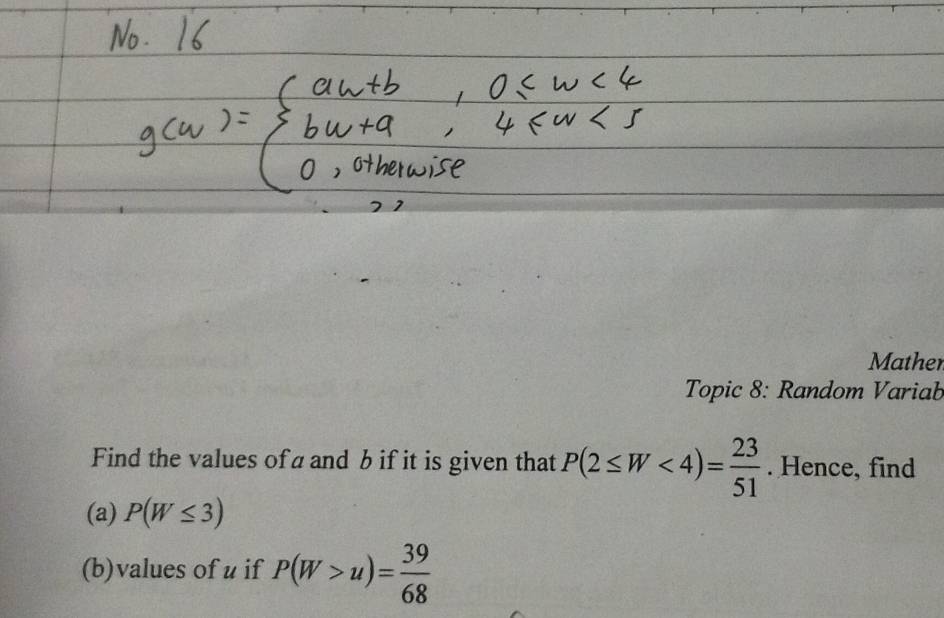 No. 16
g(w) = { aw+b , 0 ≤ w < 4
bw+a , 4 ≤ w < 5
0 , otherwise
Mather
Topic 8: Random Variab
Find the values of a and b if it is given that P(2 ≤ W < 4) = 23/51 . Hence, find
(a) P(W ≤ 3)
(b) values of u if P(W > u) = 39/68